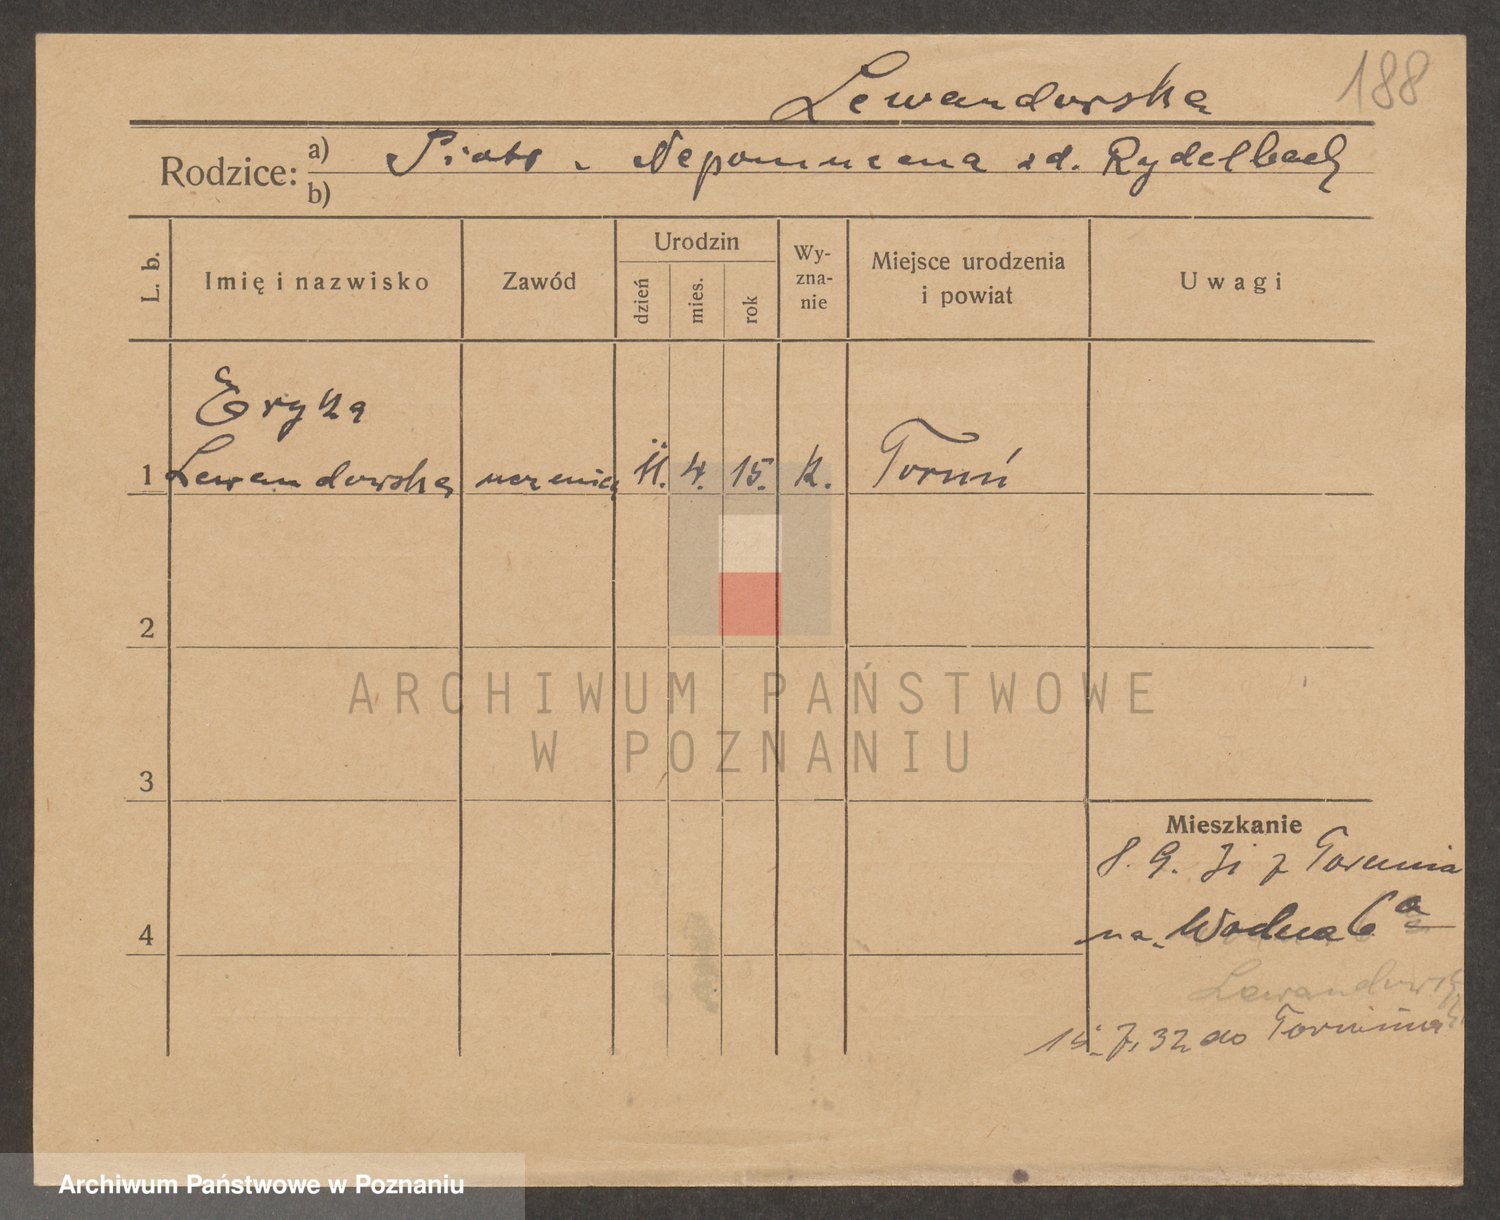 Lewandowska
188
Rodzice: a) Piotr i Nepomucena zd. Rydelbach
b)
L. b.
Imię i nazwisko
Zawód
Urodzin
dzień
mies.
rok
Wy-
zna-
nie
Miejsce urodzenia
i powiat
Uwagi
Eryka
1 Lewandowska uczenica 11. 4. 15. K. Toruń
2
ARCHIWUM PAŃSTWOWE
W POZNANIU
3
Mieszkanie
8. 9. 31 z Torunia
4
na Wodna 6 a
Lewandowsk
15. 7. 32 do Torunia
Archiwum Państwowe w Poznaniu